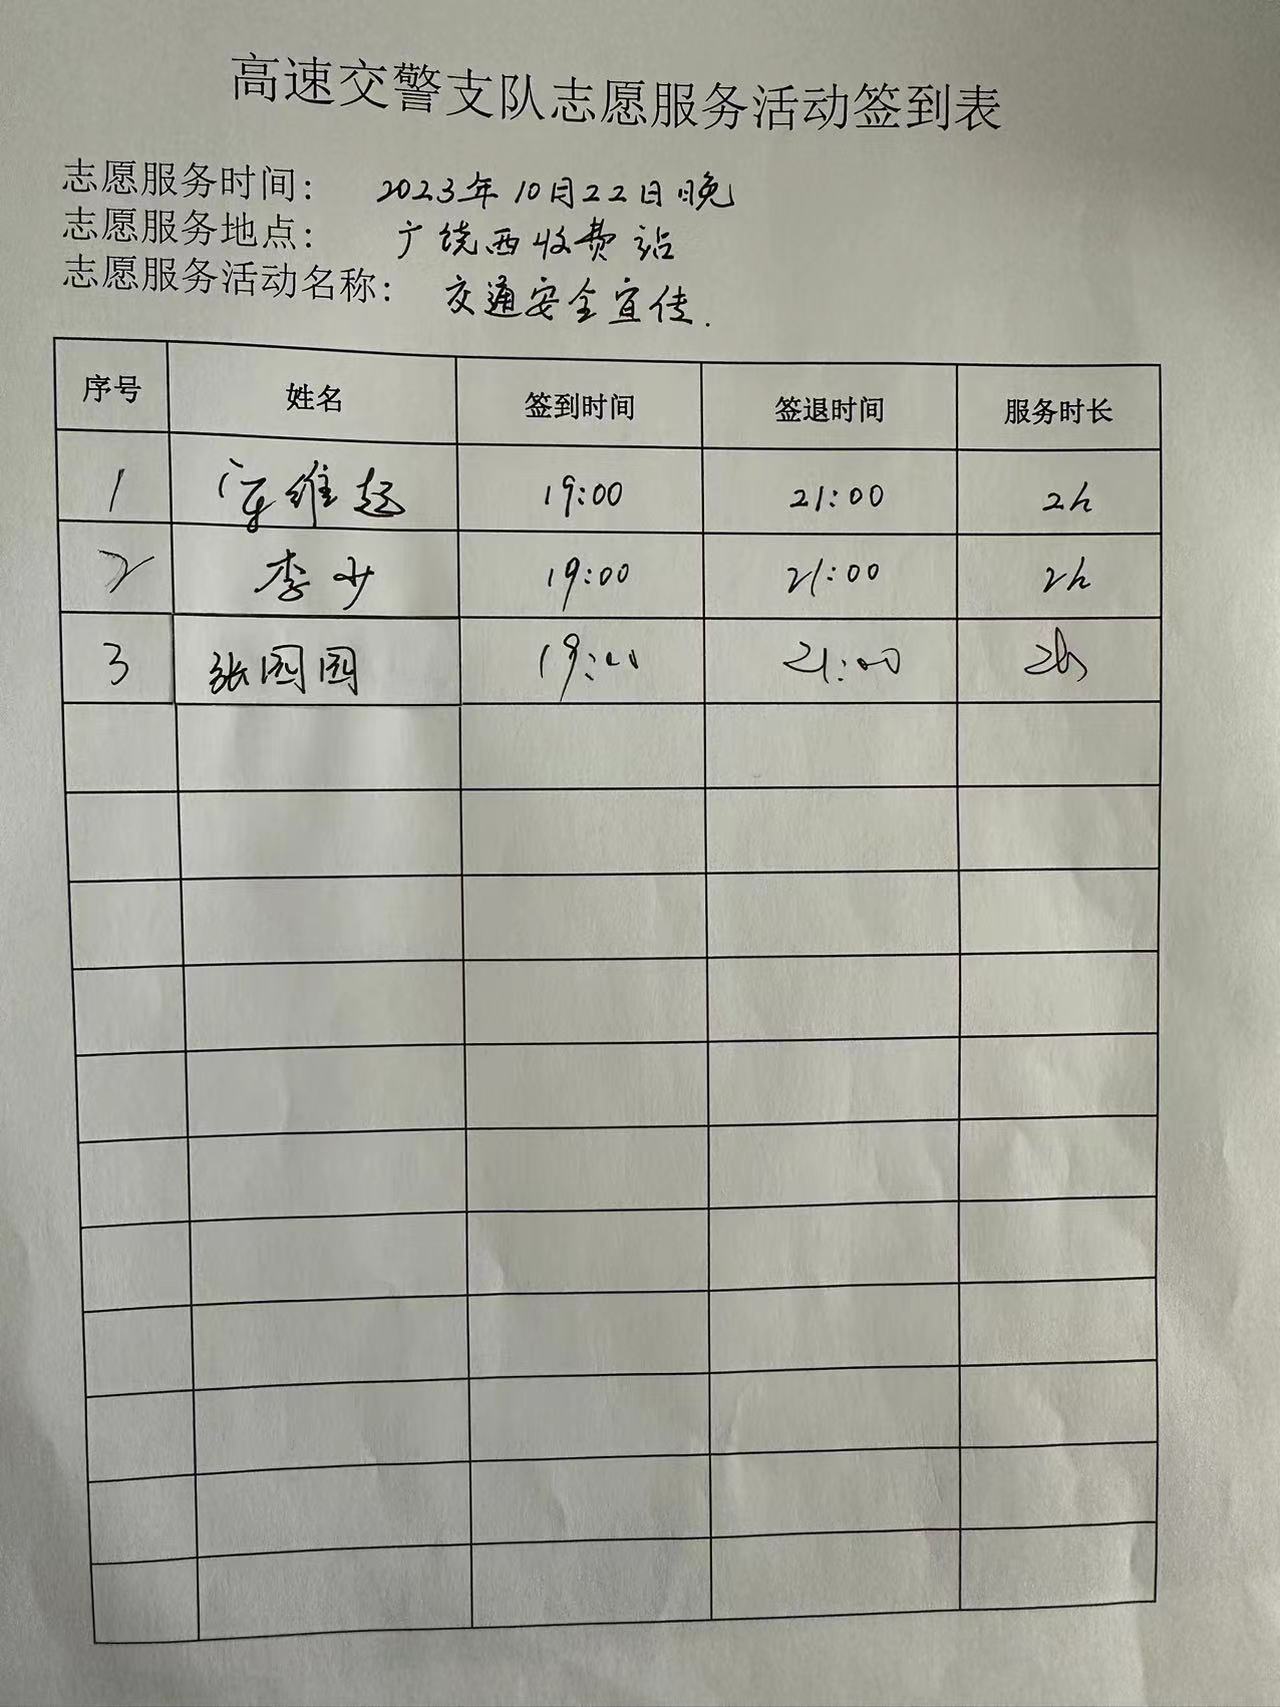 高速交警支队志愿服务活动签到表
志愿服务时间： 2023年10月22日晚
志愿服务地点： 广饶西收费站
志愿服务活动名称： 交通安全宣传.
序号 姓名 签到时间 签退时间 服务时长
1 维起 19:00 21:00 2h
2 李少 19:00 21:00 2h
3 张园园 19:00 21:00 2h